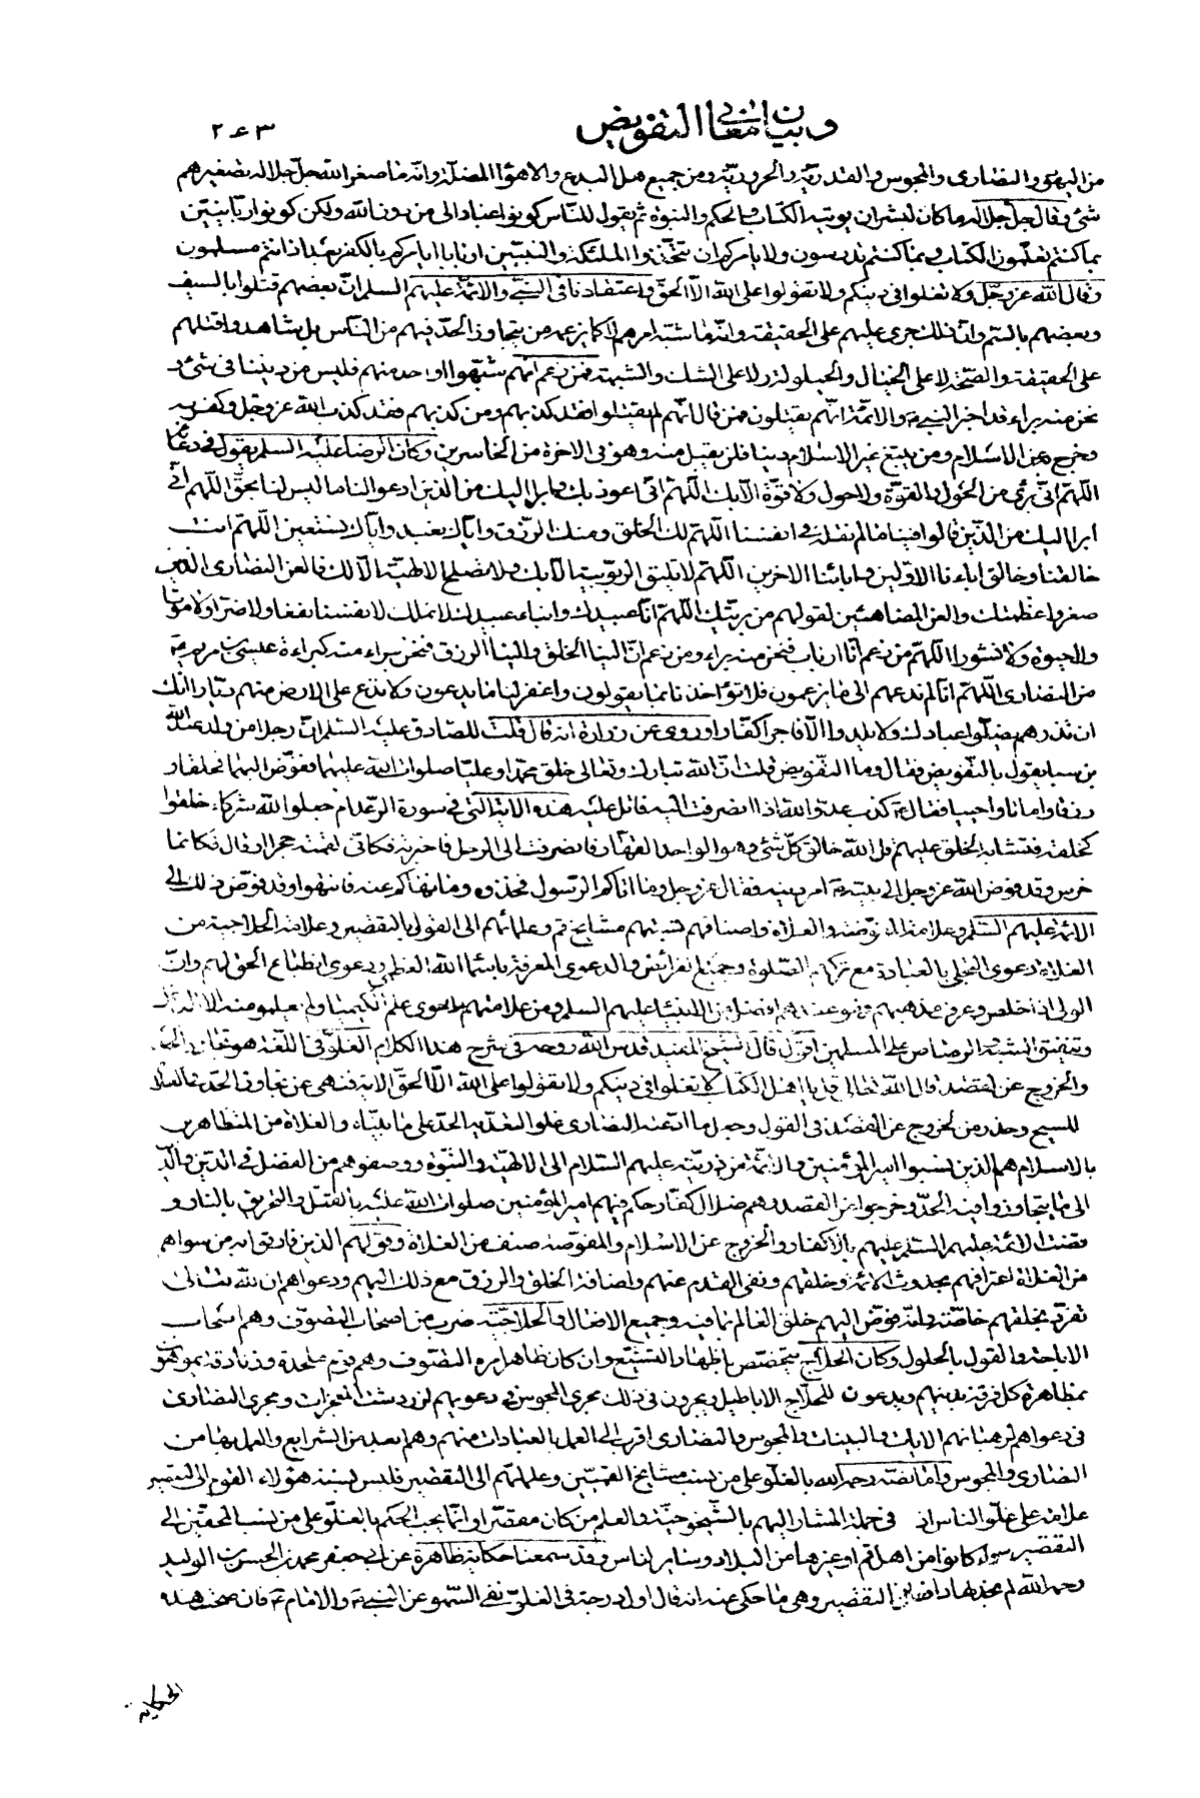 وبيان معاني التفويض
٢٤٣
من اليهود والنصارى والمجوس والقدرية والحرورية ومن جميع اهل البدع والاهواء المضلة وانه ما صغر الله جل جلاله تصغيرهم
شئ وقال جل جلاله ما كان لبشر ان يوتيه الله الكتاب والحكم والنبوة ثم يقول للناس كونوا عبادا لى من دون الله ولكن كونوا ربانيين
بما كنتم تعلمون الكتاب وبما كنتم تدرسون ولا يامركم ان تتخذوا الملئكة والنبيين اربابا ايامركم بالكفر بعد اذ انتم مسلمون
وقال الله عز وجل ولا تغلوا فى دينكم ولا تقولوا على الله الا الحق واعتقادنا فى النبى والائمة عليهم السلم ان بعضهم قتلوا بالسيف
وبعضهم بالسم وان ذلك جرى عليهم على الحقيقة وانه ما شبه امرهم كما يزعمه من يتجاوز الحد فيهم من الناس بل شاهدوا قتلهم
على الحقيقة والصحة لا على الخيال والحيلولة ولا على الشك والشبهة فمن زعم انهم شبهوا او احد منهم فليس من ديننا فى شئ و
نحن منه براء وقد اخبر النبى والائمة انهم يقتلون فمن قال انهم لم يقتلوا فقد كذبهم ومن كذبهم فقد كذب الله عز وجل وكفر به
وخرج عن الاسلام ومن يبتغ غير الاسلام دينا فلن يقبل منه وهو فى الاخرة من الخاسرين وكان الرضا عليه السلم يقول فى دعائه
اللهم انى برئ من الحول والقوة ولا حول ولا قوة الا بك اللهم انى اعوذ بك وابرا اليك من الذين ادعوا لنا ما ليس لنا بحق اللهم انى
ابرا اليك من الذين قالوا فينا ما لم نقله فى انفسنا اللهم لك الخلق ومنك الرزق واياك نعبد واياك نستعين اللهم انت
خالقنا وخالق اباءنا الاولين وابائنا الاخرين اللهم لا تليق الربوبية الا بك ولا تصلح الالهية الا لك فالعن النصارى الذين
صغروا عظمتك والعن المضاهئين لقولهم من بريتك اللهم انا عبيدك وابناء عبيدك لا نملك لانفسنا نفعا ولا ضرا ولا موتا
ولا حيوة ولا نشورا اللهم من زعم انا ارباب فنحن منه براء ومن زعم ان الينا الخلق والينا الرزق فنحن براء منه كبراءة عيسى بن مريم
من النصارى اللهم انا لم ندعهم الى ما يزعمون فلا تؤاخذنا بما يقولون واغفر لنا ما يدعون ولا تدع على الارض منهم ديارا انك
ان تذرهم يضلوا عبادك ولا يلدوا الا فاجرا كفارا وروى عن زرارة انه قال قلت للصادق عليه السلم ان رجلا من ولد عبد الله
بن سبا يقول بالتفويض فقال وما التفويض قلت ان الله تبارك وتعالى خلق محمدا وعليا صلوات الله عليهما ففوض اليهما فخلقا و
رزقا واماتا واحييا فقال كذب عدو الله اذا انصرفت اليه فاتل عليه هذه الاية التى فى سورة الرعد ام جعلوا لله شركاء خلقوا
كخلقه فتشابه الخلق عليهم قل الله خالق كل شئ وهو الواحد القهار فانصرفت الى الرجل فاخبرته فكانى القمته حجرا او قال فكانما
خرس وقد فوض الله عز وجل الى نبيه امر دينه فقال عز وجل وما اتاكم الرسول فخذوه وما نهاكم عنه فانتهوا وقد فوض ذلك الى
الائمة عليهم السلم وعلامة المفوضة والغلاة واصنافهم نسبتهم مشايخ قم وعلمائهم الى القول بالتقصير وعلامة الحلاجية من
الغلاة دعوى التجلى بالعبادة مع تركهم الصلوة وجميع الفرائض والدعوى المعرفة باسماء الله العظمى ودعوى انطباع الحق لهم وان
الولى اذا خلص وعرف مذهبهم فهو عندهم افضل من الانبياء عليهم السلم ومن علامتهم دعوى علم الكيميا ولم يعلموا منه الا الدغل
وتنفيق الشبه والرصاص على المسلمين اقول قال الشيخ المفيد قدس الله روحه فى شرح هذا الكلام الغلو فى اللغة هو تجاوز الحد
والخروج عن القصد قال الله تعالى يا اهل الكتاب لا تغلوا فى دينكم ولا تقولوا على الله الا الحق الاية فنهى عن تجاوز الحد
للمسيح وحذر من الخروج عن القصد فى القول وجعل ما ادعته النصارى غلوا لتعديه الحد على ما بيناه والغلاة من المتظاهرين
بالاسلام هم الذين نسبوا امير المؤمنين والائمة من ذريته عليهم السلام الى الالهية والنبوة ووصفوهم من الفضل فى الدين والدنيا
الى ما يتجاوزوا فيه الحد وخرجوا عن القصد وهم ضلال كفار حكم فيهم امير المؤمنين صلوات الله عليه بالقتل والتحريق بالنار و
قضت الائمة عليهم السلم عليهم بالاكفار والخروج عن الاسلام والمفوضة صنف من الغلاة وقولهم الذين فارقوا به من سواهم
من الغلاة اعترافهم بحدوث الائمة وخلقهم ونفى القدم عنهم واضافة الخلق والرزق مع ذلك اليهم ودعواهم ان الله تعالى
تفرد بخلقهم خاصة وانه فوض اليهم خلق العالم بما فيه وجميع الافعال والحلاجية ضرب من اصحاب التصوف وهم اصحاب
الاباحة والقول بالحلول وكان الحلاج يتخصص باظهار التشيع وان كان ظاهر امره التصوف وهم قوم ملحدة وزنادقة يموهون
بمظاهرة كل فرقة بدينهم ويدعون للحلاج الاباطيل ويجرون فى ذلك مجرى المجوس فى دعويهم لزردشت المعجزات ومجرى النصارى
فى دعواهم لرهبانهم الايات والبينات والمجوس والنصارى اقرب الى العمل بالعبادات منهم وهم ابعد من الشرايع والعمل بها من
النصارى والمجوس واما نصه رحمه الله بالغلو على من نسب مشايخ القميين وعلمائهم الى التقصير فليس نسبة هؤلاء القوم الى التقصير
علامة على غلو الناس اذ فى جملة المشار اليهم بالشيخوخية والعلم من كان مقصرا وانما يجب الحكم بالغلو على من نسب المحقين الى
التقصير سواء كانوا من اهل قم او غيرها من البلاد وساير الناس وقد سمعنا حكاية ظاهرة عن ابى جعفر محمد بن الحسن بن الوليد
رحمه الله لم نجد لها دافعا فى التقصير وهى ما حكى عنه انه قال اول درجة فى الغلو نفى السهو عن النبى والامام فان صحت هذه
الحكاية